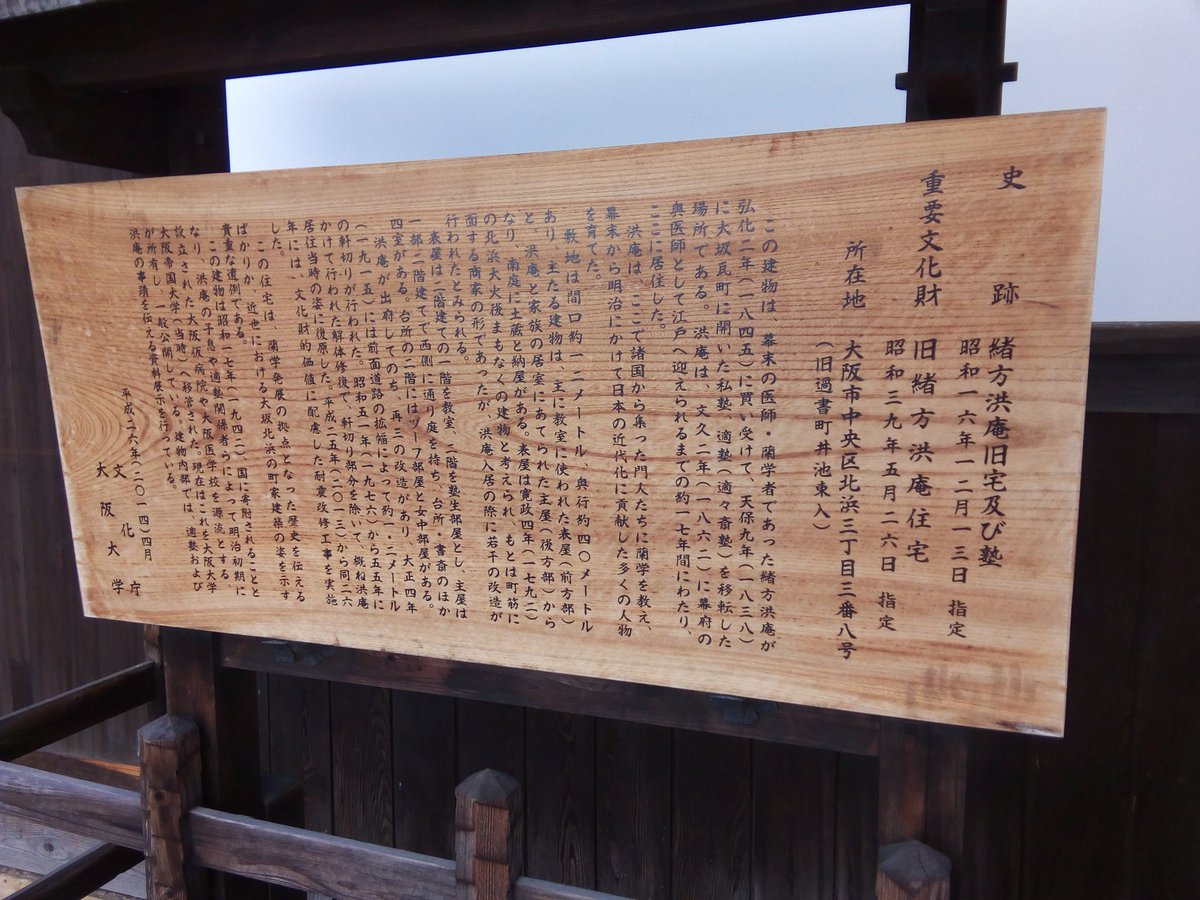 史跡 緒方洪庵旧宅及び塾
昭和一六年一二月一三日 指定
重要文化財 旧緒方洪庵住宅
昭和三九年五月二六日 指定
所在地 大阪市中央区北浜三丁目三番八号
（旧過書町丼池東入）
この建物は、幕末の医師・蘭学者であった緒方洪庵が
弘化二年（一八四五）に買い受けて、天保九年（一八三八）
に大坂瓦町に開いた私塾 適塾（適々斎塾）を移転した
場所である。洪庵は、文久二年（一八六二）に幕府の
奥医師として江戸へ迎えられるまでの約一七年間にわたり、
ここに居住した。
洪庵は、ここで諸国から集った門人たちに蘭学を教え、
幕末から明治にかけて日本の近代化に貢献した多くの人物
を育てた。
敷地は間口約一二メートル、奥行約四〇メートル
あり、主たる建物は、主に教室に使われた表屋（前方部）
と、洪庵と家族の居室にあてられた主屋（後方部）から
なり、南庭に土蔵と納屋がある。表屋は寛政四年（一七九二）
の北浜大火後まもなくの建物と考えられ、もとは町筋に
面する商家の形であったが、洪庵入居の際に若干の改造が
行われたとみられる。
表屋は二階建ての一階を教室、二階を塾生部屋とし、主屋は
一部二階建てで西側に通り庭を持ち、台所・書斎のほか
四室がある。台所の二階にはヅーフ部屋と女中部屋がある。
洪庵が出府してのち、再三の改造があり、大正四年
（一九一五）には前面道路の拡幅によって約一・二メートル
の軒切りが行われた。昭和五一年（一九七六）から五五年に
かけて行われた解体修復で、軒切り部分を除いて、概ね洪庵
居住当時の姿に復原した。平成二五年（二〇一三）から同二六
年には、文化財的価値に配慮した耐震改修工事を実施
した。
この住宅は、蘭学発展の拠点となった歴史を伝える
ばかりか、近世における大坂北浜の町家建築の姿を示す
貴重な遺例である。
この建物は昭和一七年（一九四二）国に寄附されることと
なり、洪庵の子息や適塾関係者らによって明治初期に
設立された大阪仮病院や大阪医学校を源流とする
大阪帝国大学（当時）へ移管された。現在はこれを大阪大学
が所有し、一般公開している。建物内部では、適塾および
洪庵の事績を伝える資料展示を行っている。
平成二六年（二〇一四）四月
文化庁
大阪大学